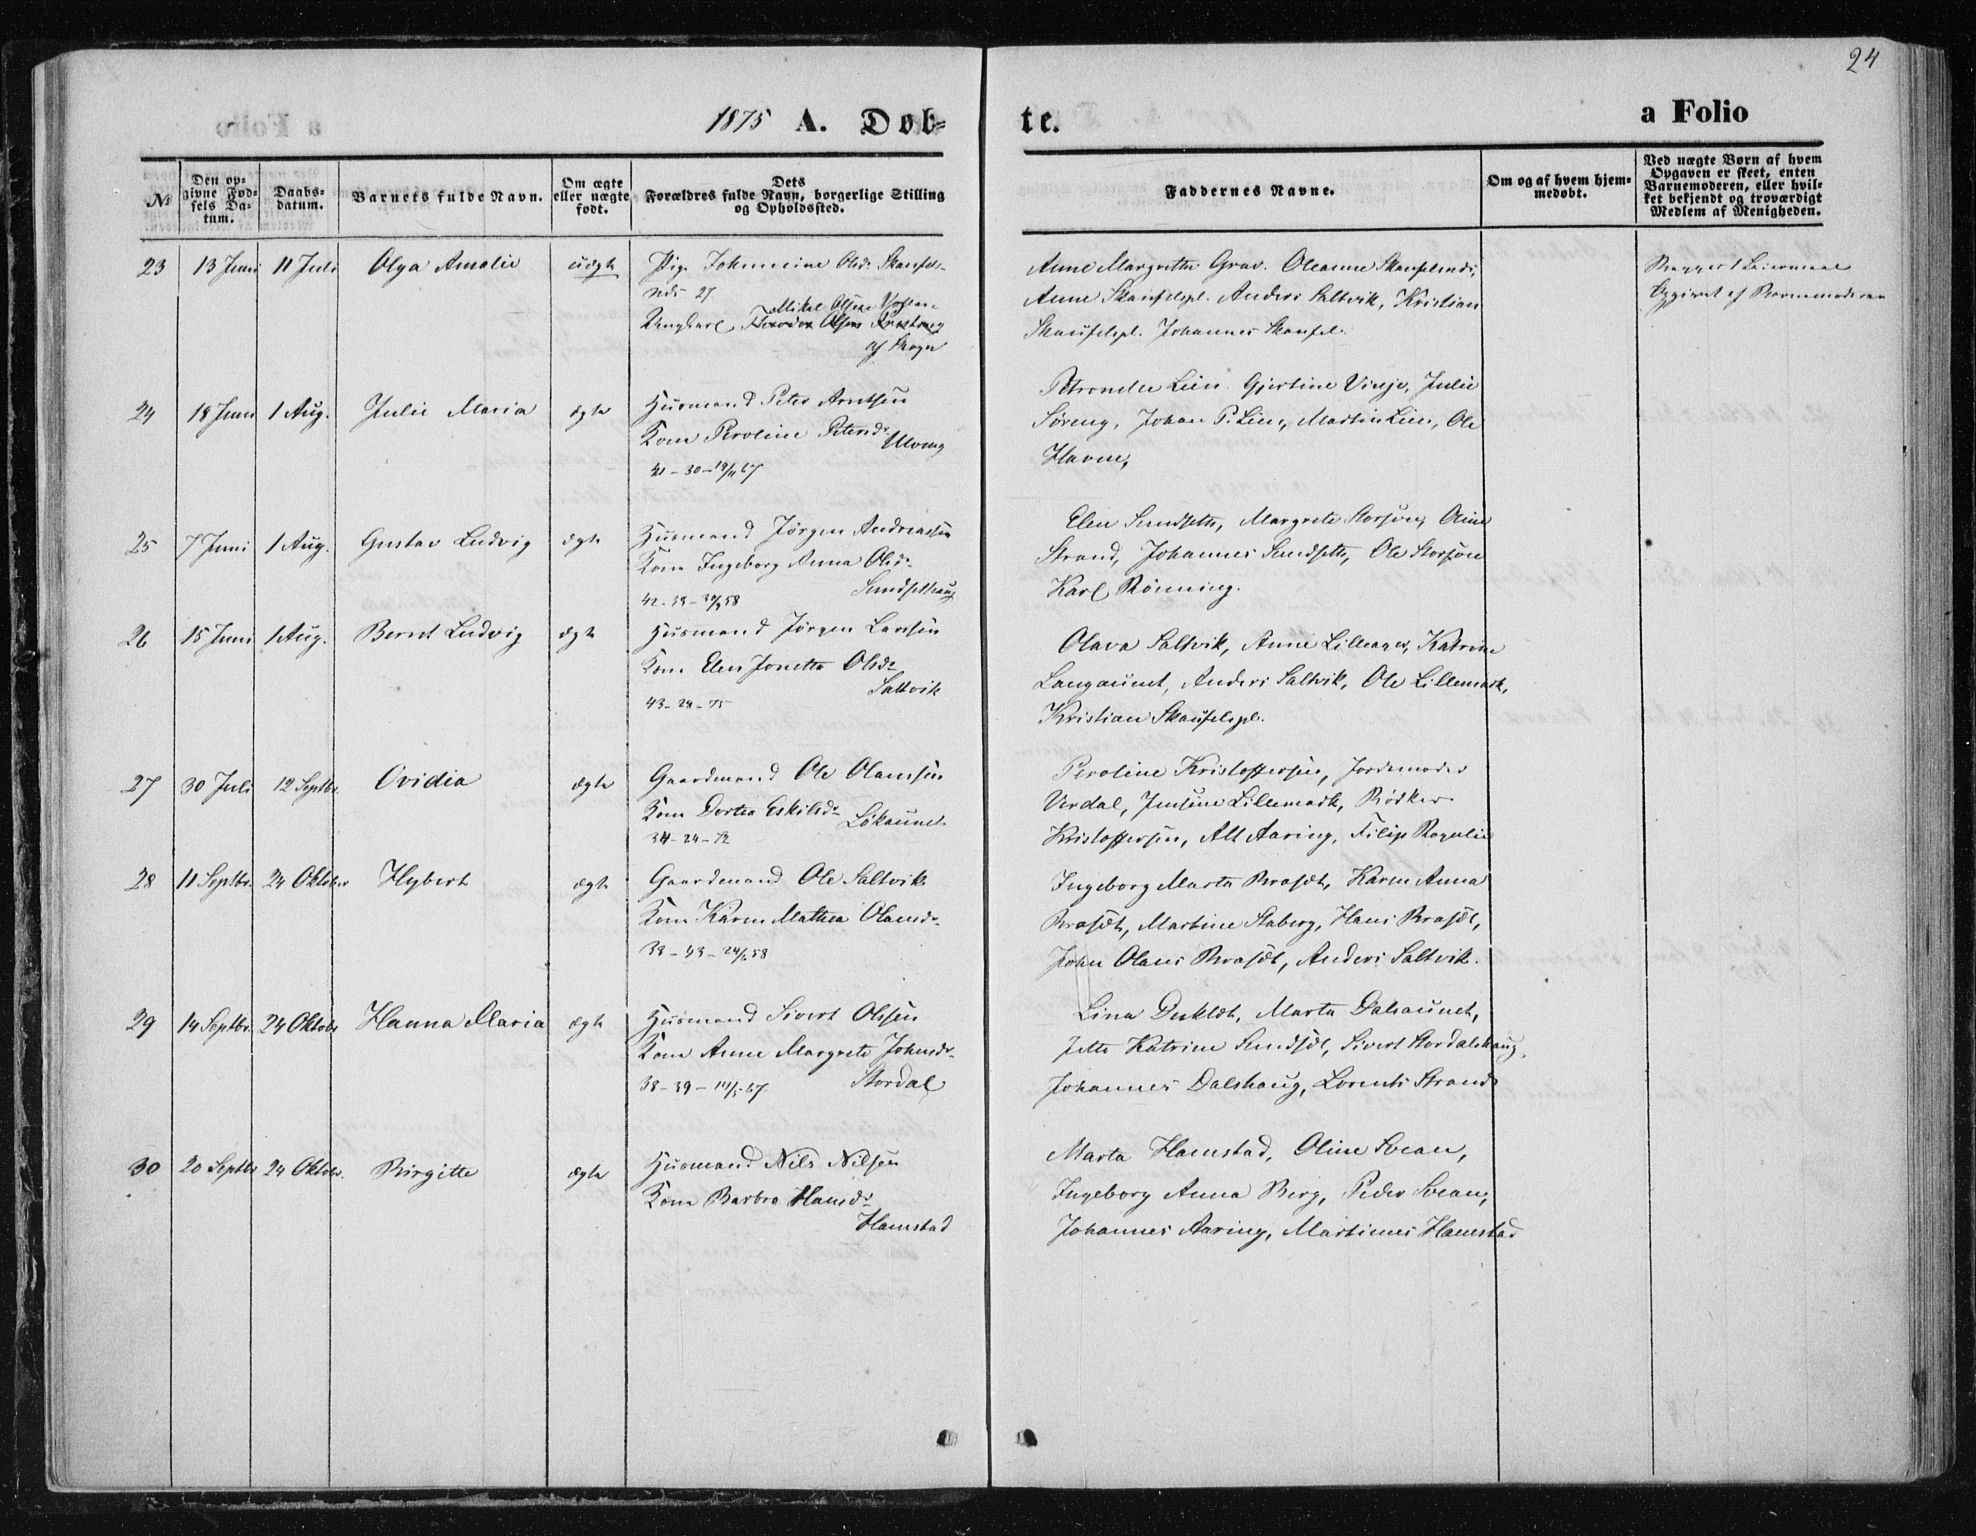 24
1875 A. Dob-
te.
a Folio
№
Den op-
givne Fød-
sels Da-
tum.
Daabs-
datum.
Barnets fulde Navn.
Om ægte
eller uægte
født.
Dets
Forældres fulde Navn, borgerlige Stilling
og Opholdssted.
Faddernes Navne.
Om og af hvem hjem-
medøbt.
Ved uægte Børn af hvem
Opgaven er skeet, enten
Barnemoderen, eller hvil-
ket bekjendt og troværdigt
Medlem af Menigheden.
23 13 Juni 11 Juli Olga Amalie uægte Pige Johannine Olsdr
27
Mikal Olsen
Ungkarl
af Skogn
Anne Margrethe Grav. Oleanne
Anne Skaufelspl. Anders Saltvik, Kristian
Skaufelspl. Johannes Skaufel.
Begges 1 Leiermaal
Opgivet af Barnemoderen
24 18 Juni 1 Aug. Julie Maria ægte Husmand Peter Arntsen
Kone Peroline Petersdr
Ulveng
41 - 30 - 19/11 67
Petronelle Lien. Gjertine Vinje, Julie
Søreng, Johan P. Lien, Martin Lien, Ole
Havne,
25 7 Juni 1 Aug. Gustav Ludvig ægte Husmand Jørgen Andreassen
Kone Ingeborg Anna Olsdr
Sundsethaug
Elen Sundseth, Margrete Storsøen, Oline
Strand, Johannes Sundseth, Ole Storsøen
Karl Rönning.
26 15 Juni 1 Aug. Bernt Ludvig ægte Husmand Jørgen Larsen
Kone Elen Jonetta Olsdr
Saltvik
43 - 28 - 75
Olava Saltvik, Anne Lilleager, Katrine
Langaunet, Anders Saltvik, Ole Lillemark,
Kristian Skaufelspl.
27 30 Juli 12 Septbr. Ovidia ægte Gaardmand Ole Olaussen
Kone Dortea Eskilsdr
Lökaunet
34 - 24 - 72
Peroline Kristoffersen, Jordemoder
Verdal, Jensine Lillemark, Bödker
Kristoffersen, Alt Aaring, Filip
28 11 Septbr. 24 Oktober Hybert ægte Gaardmand Ole Saltvik
Kone Karen Mathea Olausdr
Ingeborg Marta Brasöt, Karen Anna
Brasöt, Martine Staberg, Hans Brasöt,
John Olaus Brasöt, Anders Saltvik.
29 14 Septbr. 24 Oktobr Hanna Maria ægte Husmand Sivert Olsen
Kone Anne Margrete Johnsdr
Stordal
Lina Marta Dalsaunet,
Jette Katrine Sundsöt, Sivert Stordalshaug,
Johannes Dalshaug, Lorents Strand
30 20 Septbr 24 Oktobr. Birgitte ægte Husmand Nils Nilsen
Kone Barbro Hansdr
Hamstad
Marta Hamstad, Oline Svean,
Ingeborg Anna Berg, Peder Svean,
Johannes Aaring, Martinus Hamstad